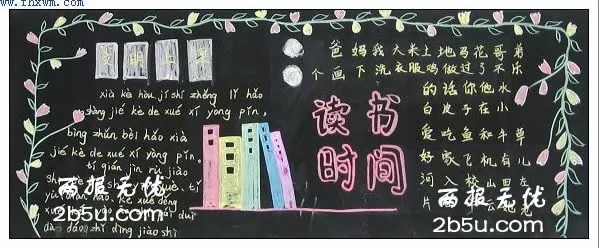 www.fhxwm.com
文明
xià kè hòu jí shí zhěng lǐ hǎo
shàng jié kè de xué xí yòng pǐn,
bìng zhǔn bèi hǎo xià
jié kè de xué xí yòng pǐn.
tí qián jìn rù jiào
dà dào shì dìng jiào shì
读书
时间
爸妈我大米土地马花哥弟
个画下洗衣服鸡做过了不乐
的话你他水
白皮子在小
爱吃鱼和牛草
好家飞机有儿
河入校山里左
片
两报无忧
2b5u.com
两报无忧
2b5u.com